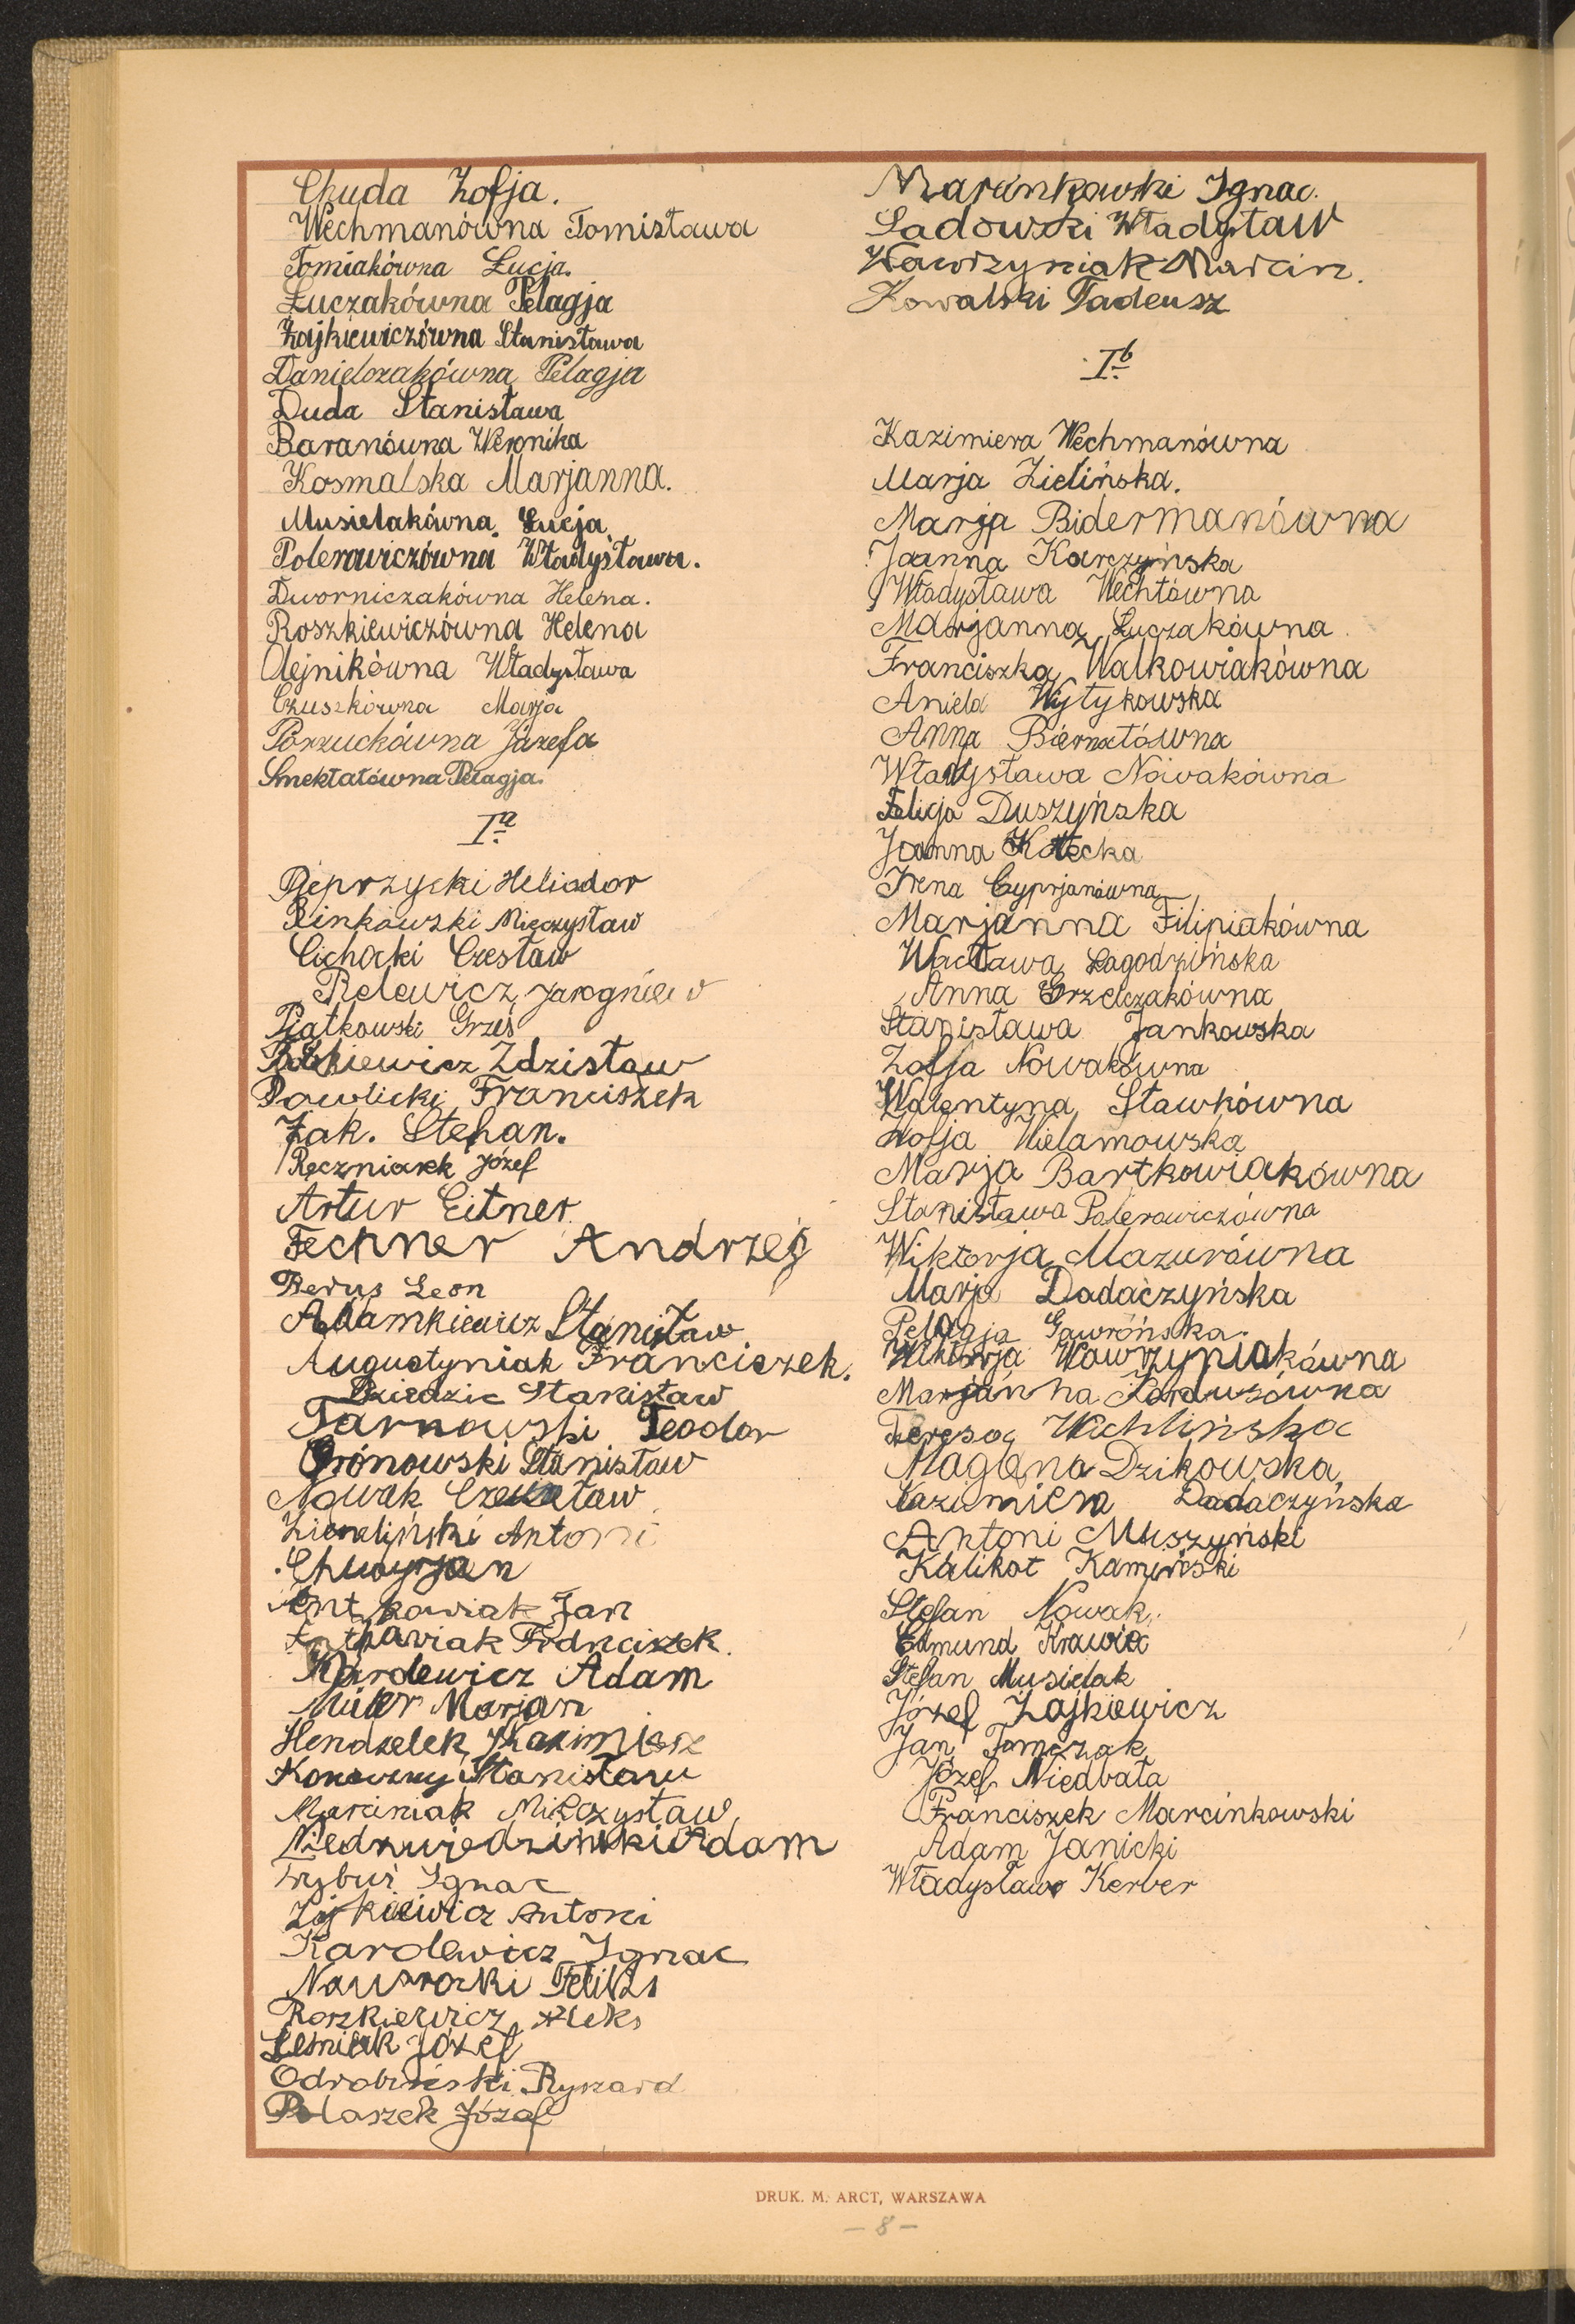 Chuda Zofja.
Wechmanówna Tomisława
Tomiakówna Łucja.
Łuczakówna Pelagja
Zajkiewiczówna Stanisława
Danielczakówna Pelagja
Duda Stanisława
Baranówna Weronika
Kosmalska Marjanna.
Musielakówna Łucja
Polerowiczówna Władysława.
Dworniczakówna Helena.
Roszkiewiczówna Helena
Olejnikówna Władysława
Czuszkówna Marja
Porzuckówna Józefa
Smektałówna Pelagja.
Ia.
Pieprzycki Heliodor
Binkowski Mieczysław
Cichocki Czesław
Relewicz Jarogniew
Piątkowski Grześ
Zdzisław
Pawlicki Franciszek
Żak. Stefan.
Ręczniarek Józef
Artur Eitner
Fechner Andrzej
Berus Leon
Adamkiewicz Stanisław
Augustyniak Franciszek.
Dziedzic Stanisław
Tarnowski Teodor
Gronowski Stanisław
Nowak Czesław
Zieneliński Antoni
Chwyrjan
Antkowiak Jan
Antkowiak Franciszek.
Karolewicz Adam
Müler Marjan
Hendzelek Kazimierz
Konieczny Stanisław
Marciniak Mieczysław
Niedzwiedzinski Adam
Trybuś Ignac
Zajkiewicz Antoni
Karolewicz Ignac
Nawrocki Feliks
Roszkiewicz Aleks
Leśniak Józef
Odrobiński Ryszard
Polaszek Józef
Marcinkowski Ignac.
Sadowski Władysław
Wawrzyniak Marcin.
Kowalski Tadeusz
Ib.
Kazimiera Wechmanówna
Marja Zielińska.
Marja Bidermanówna
Joanna Karczyńska
Władysława Wechtówna
Marjanna Łuczakówna.
Franciszka Walkowiakówna
Aniela Wytykowska
Anna Biernatówna
Władysława Nowakówna
Felicja Duszyńska
Joanna Kotecka
Irena Cyprjanówna
Marjanna Filipiakówna
Wacława Łagodzińska
Anna Grzelczakówna
Stanisława Jankowska
Zofja Nowakówna
Walentyna Stawkówna
Zofja Wielamowska
Marja Bartkowiakówna
Stanisława Polerowiczówna
Wiktorja Mazurówna
Marja Dadaczyńska
Pelagja Gawrońska.
Wiktorja Wawrzyniakówna
Marjanna Kardusówna
Teresa Wichlińska
Magdena Dzikowska
Kazimiera Dadaczyńska
Antoni Muszyński
Kalikst Kamiński
Stefan Nowak.
Edmund Krawiec
Stefan Musielak
Józef Zajkiewicz
Jan Tomczak
Józef Niedbała
Franciszek Marcinkowski
Adam Janicki
Władysław Kerber
DRUK. M. ARCT, WARSZAWA
— 8 —